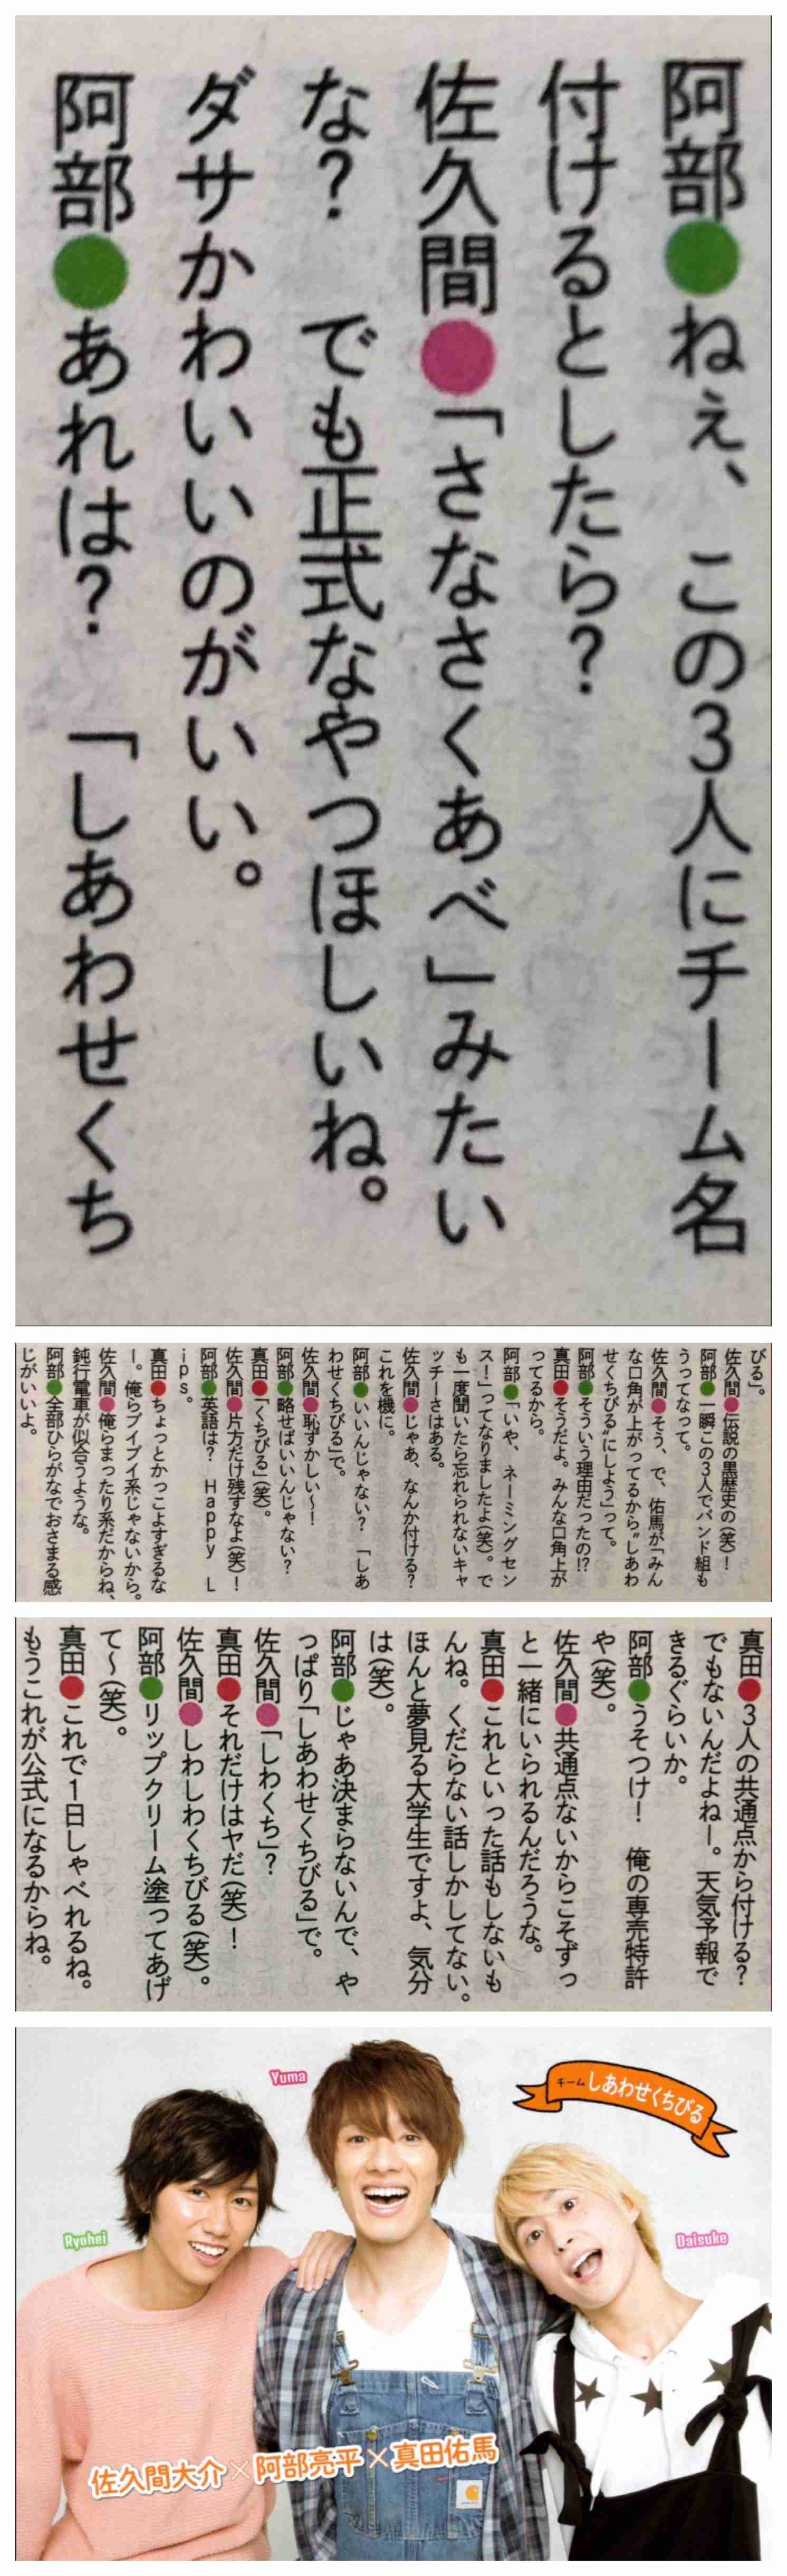 阿部●ねぇ、この3人にチーム名
付けるとしたら?
佐久間●「さなさくあべ」みたい
な? でも正式なやつほしいね。
ダサかわいいのがいい。
阿部●あれは? 「しあわせくち
びる」。
佐久間●伝説の黒歴史の(笑)!
阿部●一瞬この3人でバンド組も
うってなって。
佐久間●そう、で、佑馬が「みん
な口角が上がってるから〝しあわ
せくちびる〟にしよう」って。
阿部●そういう理由だったの!?
真田●そうだよ。みんな口角上が
ってるから。
阿部●「いや、ネーミングセン
ス!」ってなりましたよ(笑)。で
も一度聞いたら忘れられないキャ
ッチーさはある。
佐久間●じゃあ、なんか付ける?
これを機に。
阿部●いいんじゃない? 「しあ
わせくちびる」で。
佐久間●恥ずかしい〜!
阿部●略せばいいんじゃない?
真田●「くちびる」(笑)。
佐久間●片方だけ残すなよ(笑)!
阿部●英語は? Happy L
ips。
真田●ちょっとかっこよすぎるな
ー。俺らブイブイ系じゃないから。
佐久間●俺らまったり系だからね、
鈍行電車が似合うような。
阿部●全部ひらがなでおさまる感
じがいいよ。
真田●3人の共通点から付ける?
でもないんだよねー。天気予報で
きるぐらいか。
阿部●うそつけ! 俺の専売特許
や(笑)。
佐久間●共通点ないからこそずっ
と一緒にいられるんだろうな。
真田●これといった話もしないも
んね。くだらない話しかしてない。
ほんと夢見る大学生ですよ、気分
は(笑)。
阿部●じゃあ決まらないんで、や
っぱり「しあわせくちびる」で。
佐久間●「しわくち」?
真田●それだけはヤだ(笑)!
佐久間●しわしわくちびる(笑)。
阿部●リップクリーム塗ってあげ
て〜(笑)。
真田●これで1日しゃべれるね。
もうこれが公式になるからね。
チームしあわせくちびる
Yuma
Ryohei
Daisuke
佐久間大介×阿部亮平×真田佑馬